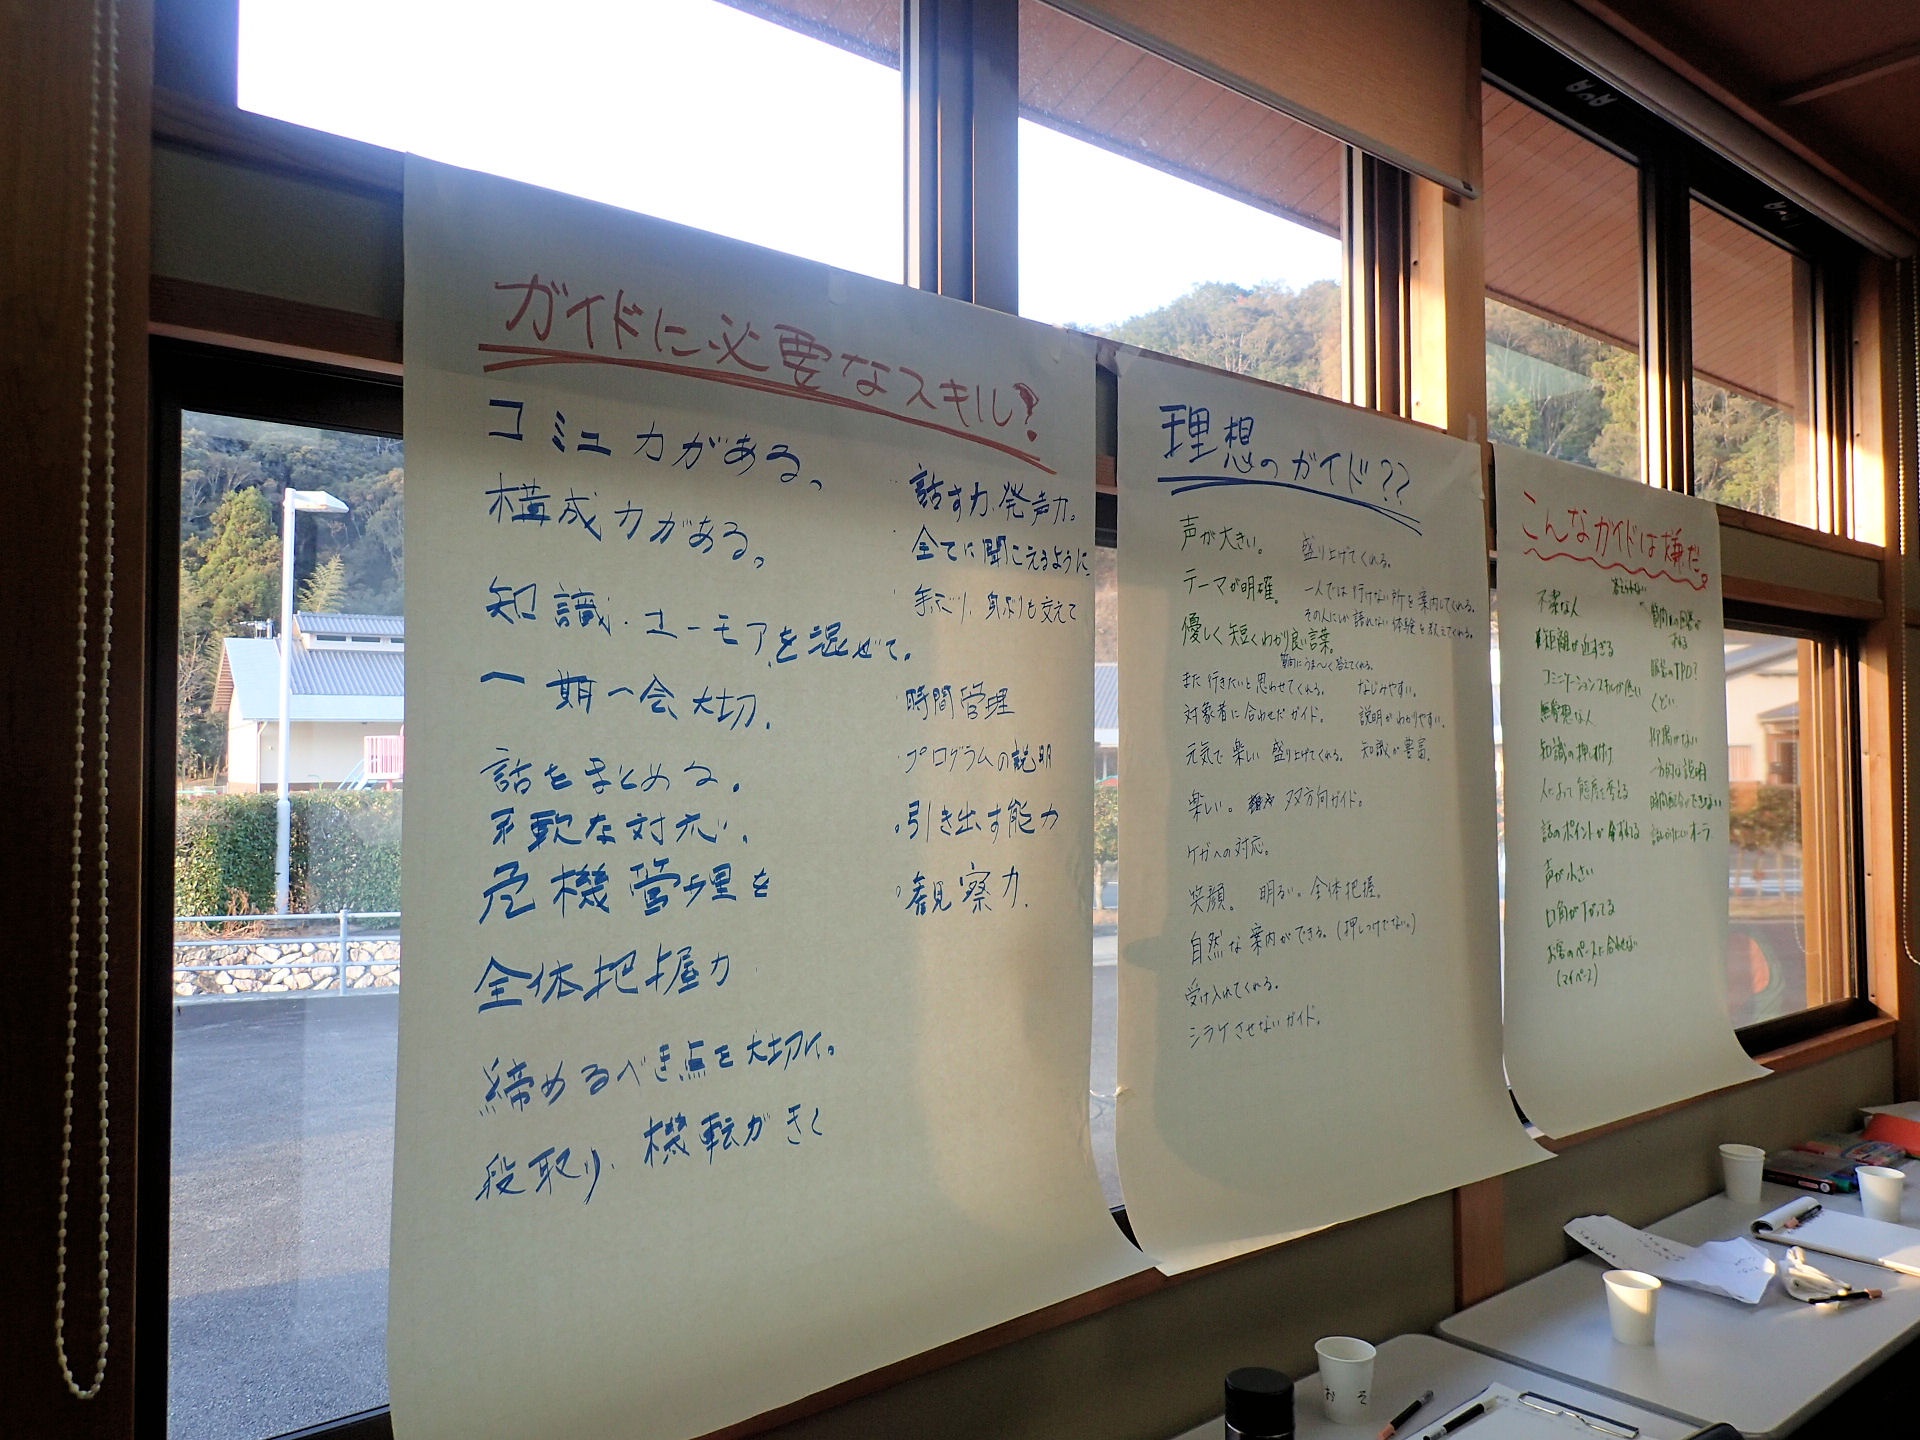 ガイドに必要なスキル?
コミュ力がある。
構成力がある。
知識・ユーモアを混ぜて。
一期一会大切.
話をまとめる。
柔軟な対応、
危機管理を
全体把握力
締めるべき点を大切に。
段取り、機転がきく
話す力、発声力。
全てに聞こえるように、
手ぶり、身ぶりも交えて
・時間管理
・プログラムの説明
・引き出す能力
・観察力.
理想のガイド??
声が大きい。
盛り上げてくれる。
テーマが明確。
一人では行けない所を案内してくれる。
その人にしか語れない体験を教えてくれる。
優しく短くわかり良い言葉。
質問にうま〜く答えてくれる。
また行きたいと思わせてくれる。
なじみやすい。
対象者に合わせたガイド。
説明がわかりやすい。
元気で楽しい盛り上げてくれる。
知識が豊富。
楽しい。
双方向ガイド。
ケガへの対応。
笑顔。 明るい。全体把握。
自然な案内ができる。(押しつけでない。)
受け入れてくれる。
シラケさせないガイド。
こんなガイドは嫌だ。
不潔な人
距離が近すぎる
コミニケーションスキルが低い
無愛想な人
知識の押し付け
人によって態度を変える
話のポイントがずれる
声が小さい
口角が下がってる
お客のペースに合わせない
(マイペース)
答えられない
服装のTPO?
くどい
一方的な説明
時間配分ができない
話しかけにくいオーラ
おそ